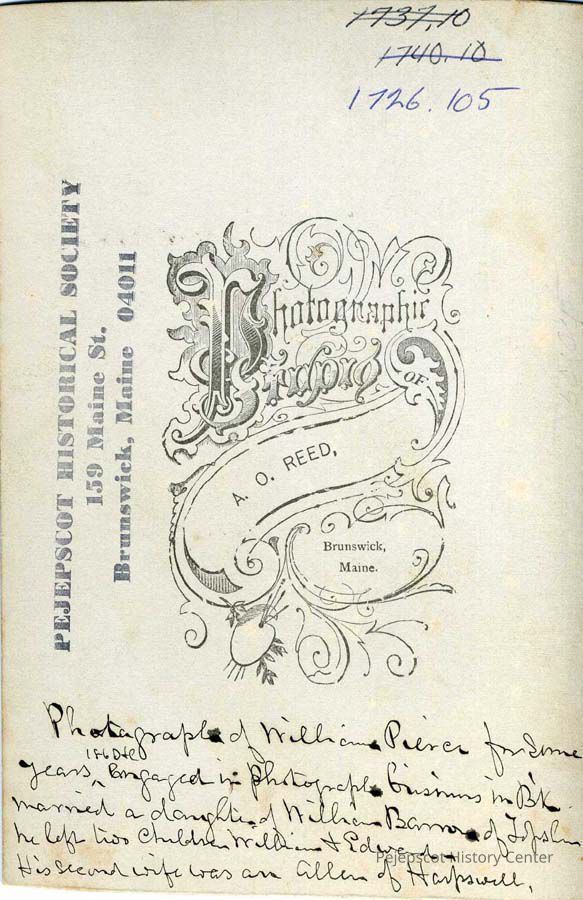 1737.10
1740.10
1726.105
PEJEPSCOT HISTORICAL SOCIETY
159 Maine St.
Brunswick, Maine 04011
Photographic
Studio
OF
A. O. REED,
Brunswick,
Maine.
Photagraph of William Pierce for Some
years, Engaged in Photograph business in Bk
married a daughter of William Barron of Topsham
he left two Children William & Edward
His Second wife was an Allen of Harpswell,
Pejepscot History Center